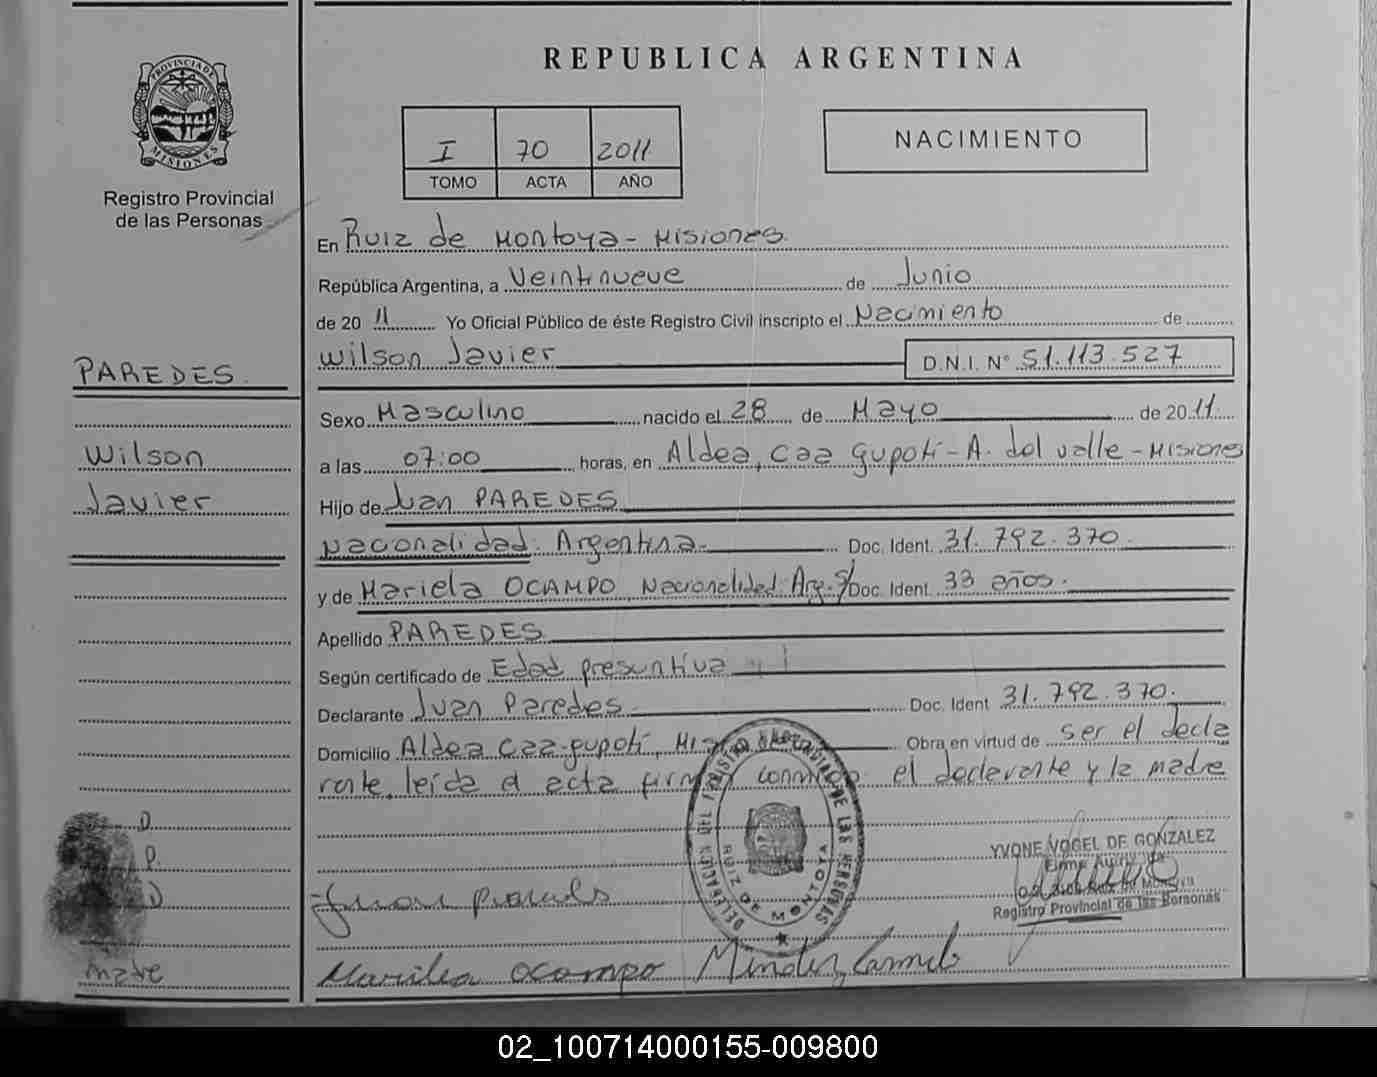 REPUBLICA ARGENTINA
PROVINCIA DE MISIONES
Registro Provincial
de las Personas
I 70 2011
TOMO ACTA AÑO
NACIMIENTO
En Ruiz de Montoya - Misiones
República Argentina, a Veintinueve de Junio
de 20 11 Yo Oficial Público de éste Registro Civil inscripto el Nacimiento de
Wilson Javier D.N.I. N° 51.113.527
PAREDES
Wilson
Javier
Sexo Masculino nacido el 28 de Mayo de 20 11
a las 07:00 horas, en Aldea, Caa Gupotí - A. del valle - Misiones
Hijo de Juan PAREDES
Nacionalidad: Argentina. Doc. Ident. 31.792.370
y de Mariela OCAMPO Nacionalidad: Arg. S/ Doc. Ident. 33 años.
Apellido PAREDES
Según certificado de Edad presuntiva y
Declarante Juan Paredes. Doc. Ident 31.792.370.
Domicilio Aldea Caa-gupotí, Obra en virtud de ser el decla
rante, leída el acta conmigo el declarante y la madre
D
P.
D
madre
DELEGACION DEL REGISTRO PROVINCIAL DE LAS PERSONAS
RUIZ DE MONTOYA
YVONE VOGEL DE GONZALEZ
Registro Provincial de las Personas
Ocampo Mendez
02_100714000155-009800